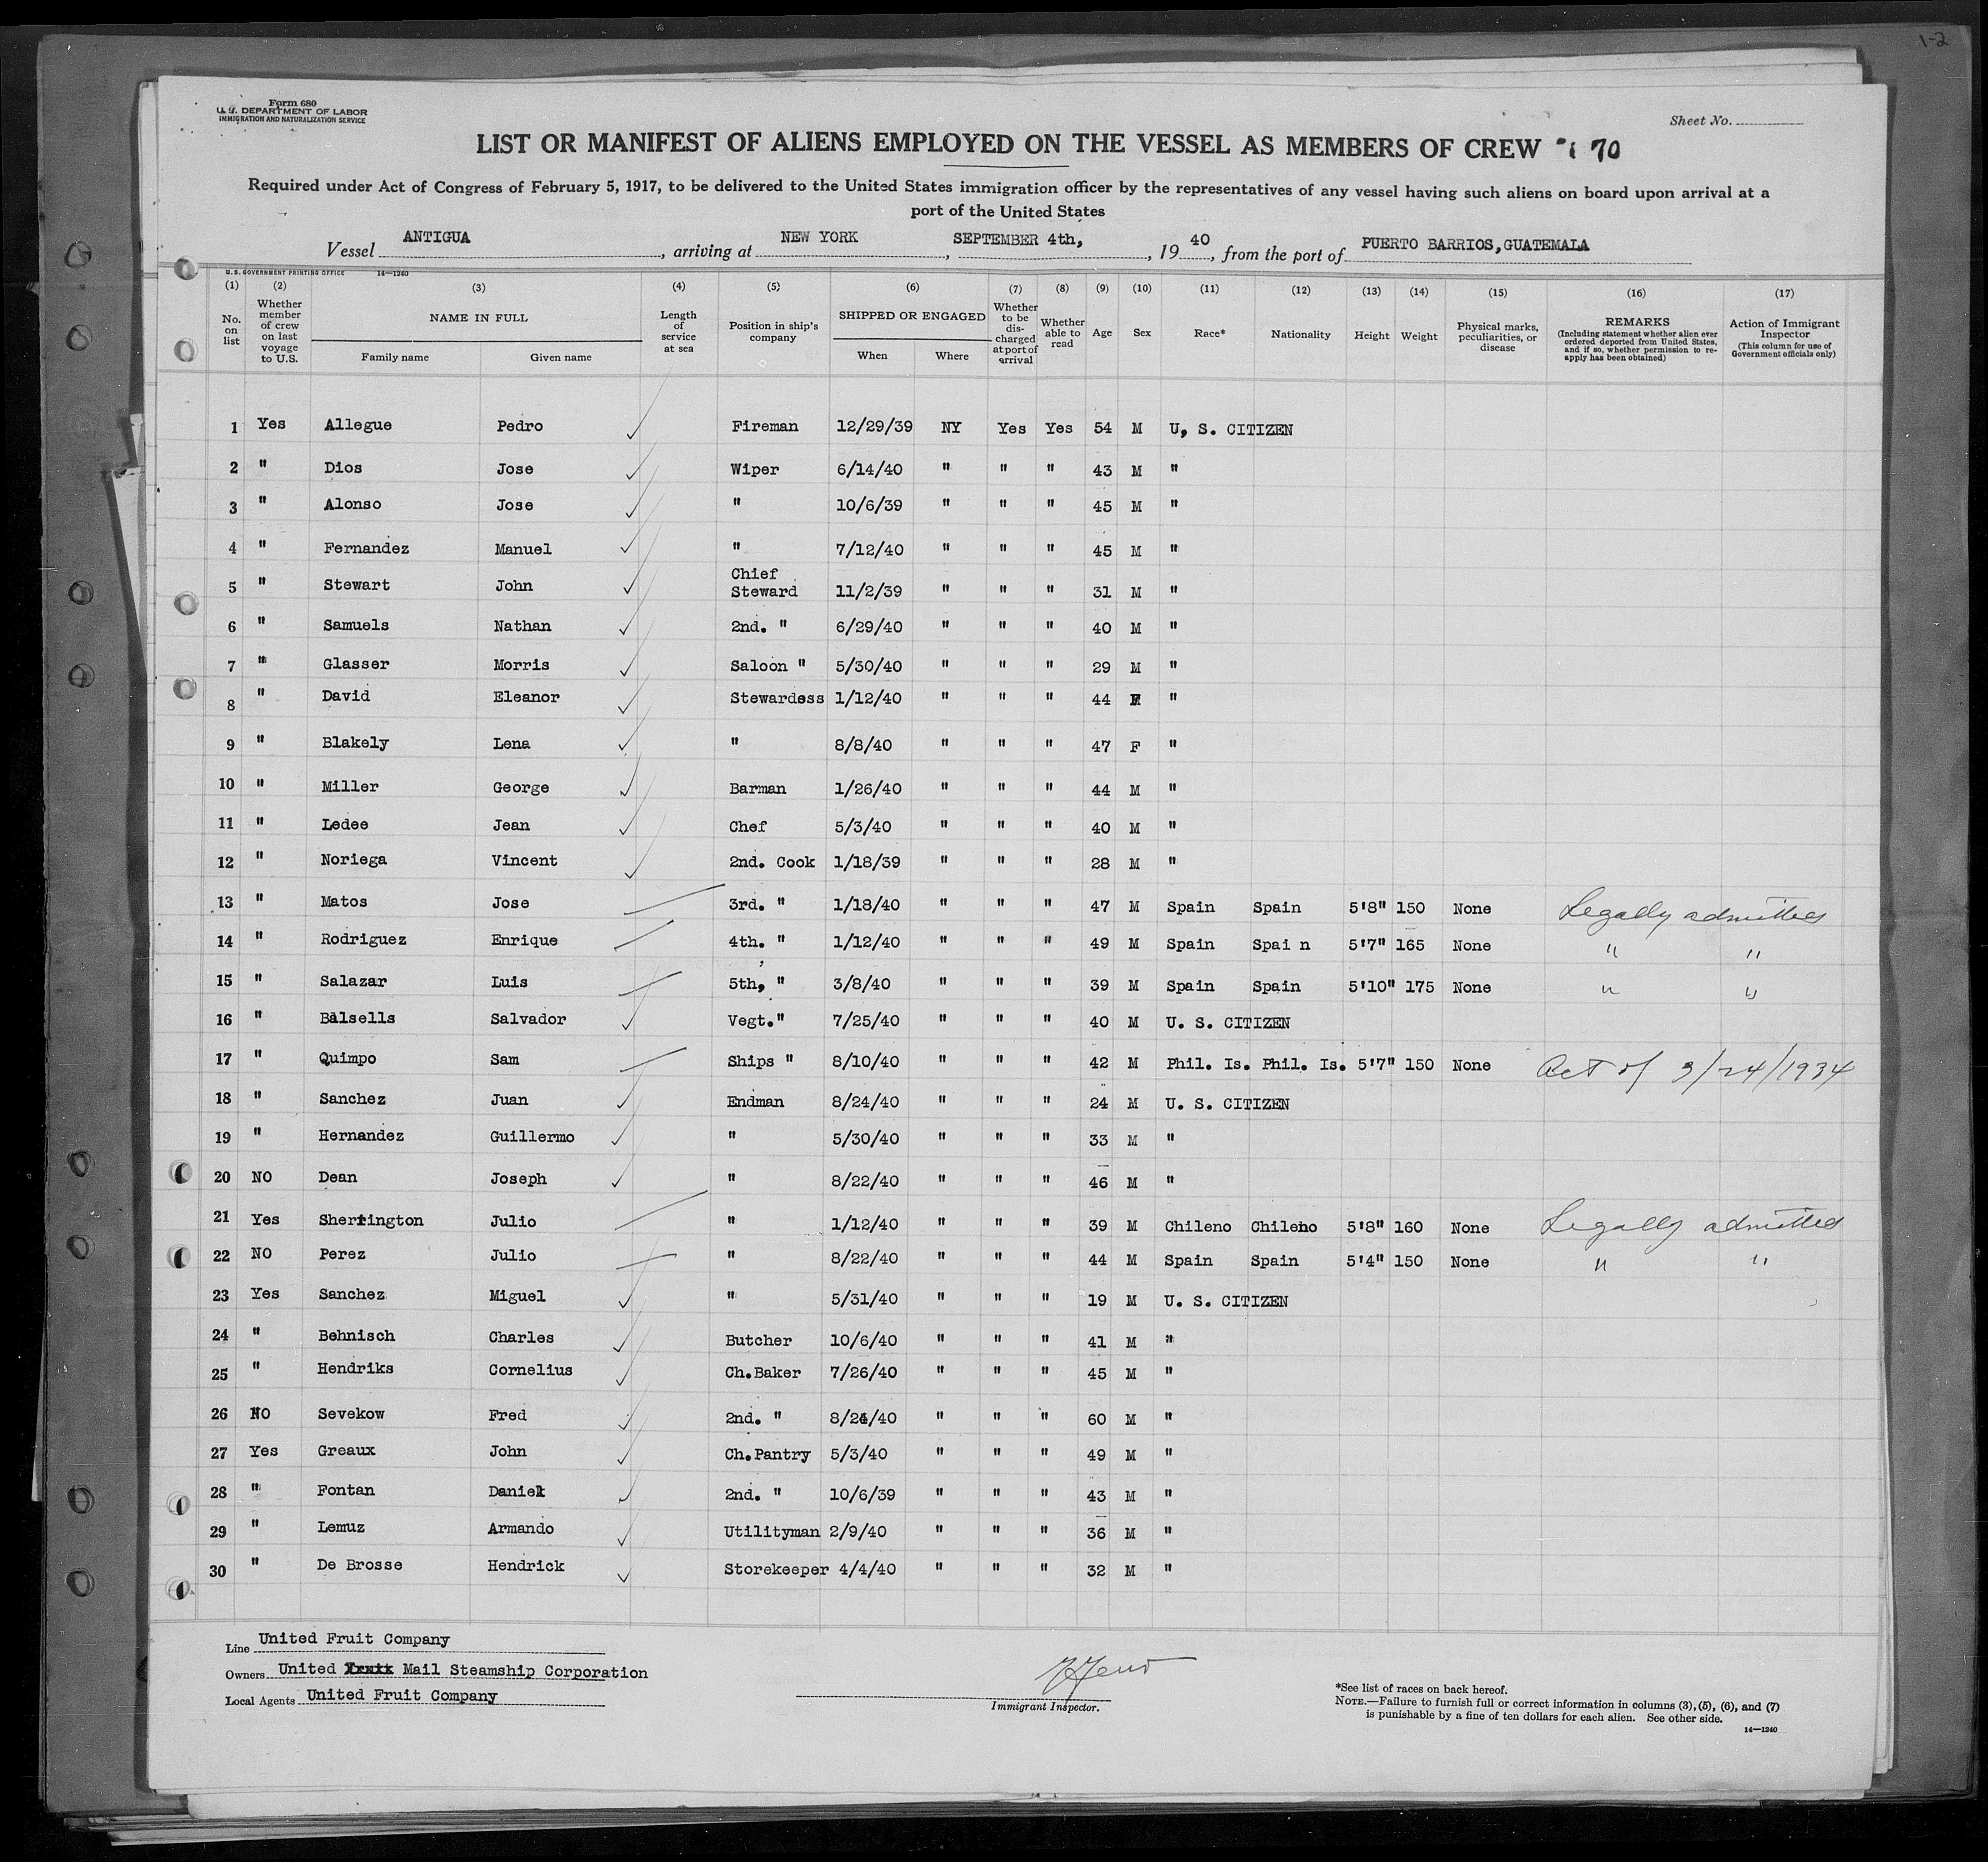 1-2
Form 680
U. S. DEPARTMENT OF LABOR
IMMIGRATION AND NATURALIZATION SERVICE
Sheet No.
LIST OR MANIFEST OF ALIENS EMPLOYED ON THE VESSEL AS MEMBERS OF CREW 70
Required under Act of Congress of February 5, 1917, to be delivered to the United States immigration officer by the representatives of any vessel having such aliens on board upon arrival at a
port of the United States
Vessel ANTIGUA, arriving at NEW YORK, SEPTEMBER 4th, 1940, from the port of PUERTO BARRIOS,GUATEMALA
U.S. GOVERNMENT PRINTING OFFICE 14—1240
(1) No. on list
(2) Whether member of crew on last voyage to U.S.
(3) NAME IN FULL Family name Given name
(4) Length of service at sea
(5) Position in ship's company
(6) SHIPPED OR ENGAGED When Where
(7) Whether to be discharged at port of arrival
(8) Whether able to read
(9) Age
(10) Sex
(11) Race*
(12) Nationality
(13) Height
(14) Weight
(15) Physical marks, peculiarities, or disease
(16) REMARKS (Including statement whether alien ever ordered deported from United States, and if so, whether permission to re-apply has been obtained)
(17) Action of Immigrant Inspector (This column for use of Government officials only)
1 Yes Allegue Pedro Fireman 12/29/39 NY Yes Yes 54 M U, S. CITIZEN
2 " Dios Jose Wiper 6/14/40 " " " 43 M "
3 " Alonso Jose " 10/6/39 " " " 45 M "
4 " Fernandez Manuel " 7/12/40 " " " 45 M "
5 " Stewart John Chief Steward 11/2/39 " " " 31 M "
6 " Samuels Nathan 2nd. " 6/29/40 " " " 40 M "
7 " Glasser Morris Saloon " 5/30/40 " " " 29 M "
8 " David Eleanor Stewardess 1/12/40 " " " 44 F "
9 " Blakely Lena " 8/8/40 " " " 47 F "
10 " Miller George Barman 1/26/40 " " " 44 M "
11 " Ledee Jean Chef 5/3/40 " " " 40 M "
12 " Noriega Vincent 2nd. Cook 1/18/39 " " " 28 M "
13 " Matos Jose 3rd. " 1/18/40 " " " 47 M Spain Spain 5'8" 150 None Legally admitted
14 " Rodriguez Enrique 4th. " 1/12/40 " " " 49 M Spain Spai n 5'7" 165 None " "
15 " Salazar Luis 5th, " 3/8/40 " " " 39 M Spain Spain 5'10" 175 None " "
16 " Balsells Salvador Vegt." 7/25/40 " " " 40 M U. S. CITIZEN
17 " Quimpo Sam Ships " 8/10/40 " " " 42 M Phil. Is. Phil. Is. 5'7" 150 None Act of 3/24/1934
18 " Sanchez Juan Endman 8/24/40 " " " 24 M U. S. CITIZEN
19 " Hernandez Guillermo " 5/30/40 " " " 33 M "
20 NO Dean Joseph " 8/22/40 " " " 46 M "
21 Yes Sherrington Julio " 1/12/40 " " " 39 M Chileno Chileno 5'8" 160 None Legally admitted
22 NO Perez Julio " 8/22/40 " " " 44 M Spain Spain 5'4" 150 None " "
23 Yes Sanchez Miguel " 5/31/40 " " " 19 M U. S. CITIZEN
24 " Behnisch Charles Butcher 10/6/40 " " " 41 M "
25 " Hendriks Cornelius Ch.Baker 7/26/40 " " " 45 M "
26 NO Sevekow Fred 2nd. " 8/24/40 " " " 60 M "
27 Yes Greaux John Ch.Pantry 5/3/40 " " " 49 M "
28 " Fontan Daniel 2nd. " 10/6/39 " " " 43 M "
29 " Lemuz Armando Utilityman 2/9/40 " " " 36 M "
30 " De Brosse Hendrick Storekeeper 4/4/40 " " " 32 M "
Line United Fruit Company
Owners United Mail Steamship Corporation
Local Agents United Fruit Company
Immigrant Inspector.
*See list of races on back hereof.
NOTE.—Failure to furnish full or correct information in columns (3), (5), (6), and (7)
is punishable by a fine of ten dollars for each alien. See other side.
14—1240